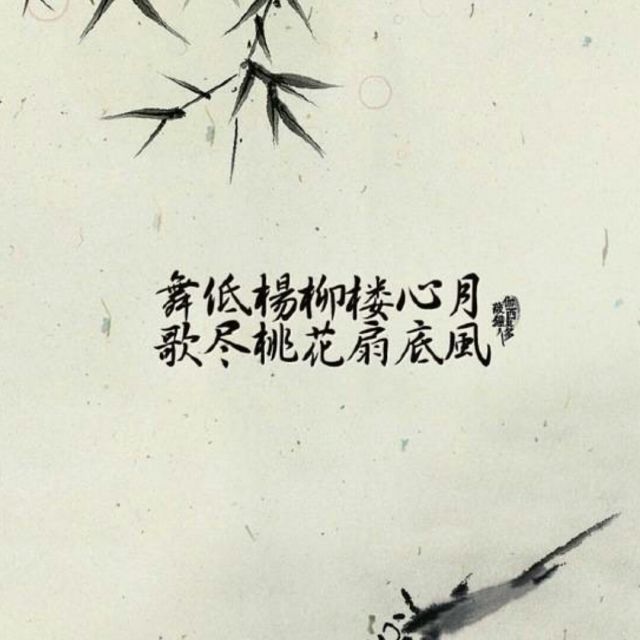 舞低楊柳楼心月
歌尽桃花扇底風